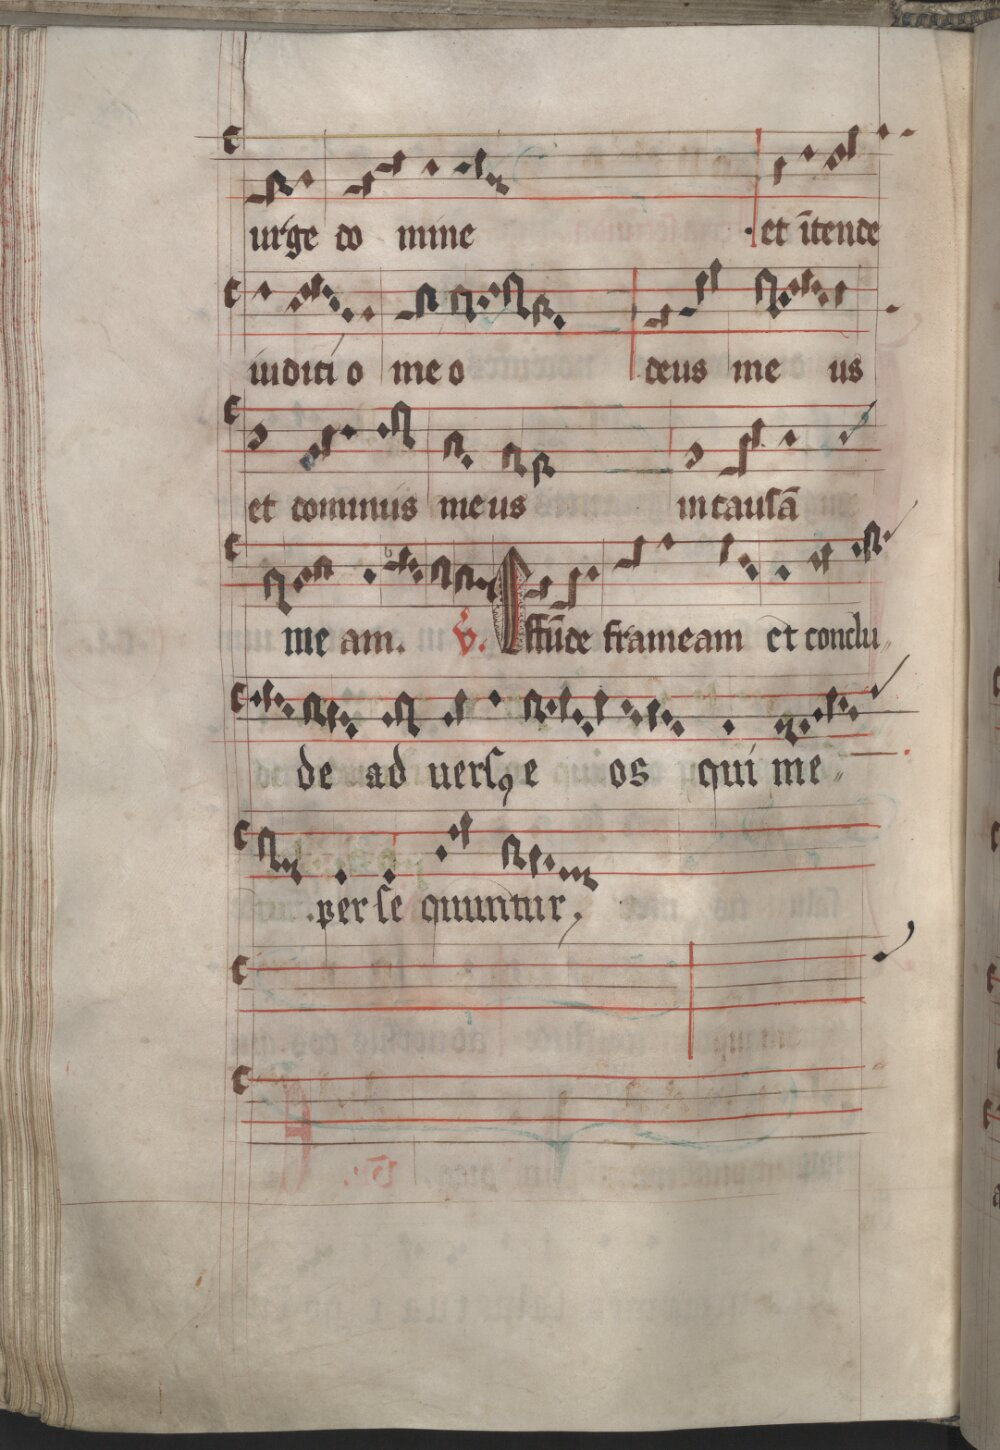 urge do mine et ītende
iuditi o me o deus me us
et dominus me us in causā
me am. v̄. Effūde frameam et conclu„
de ad uersꝰ e os qui me„
per se quuntur,